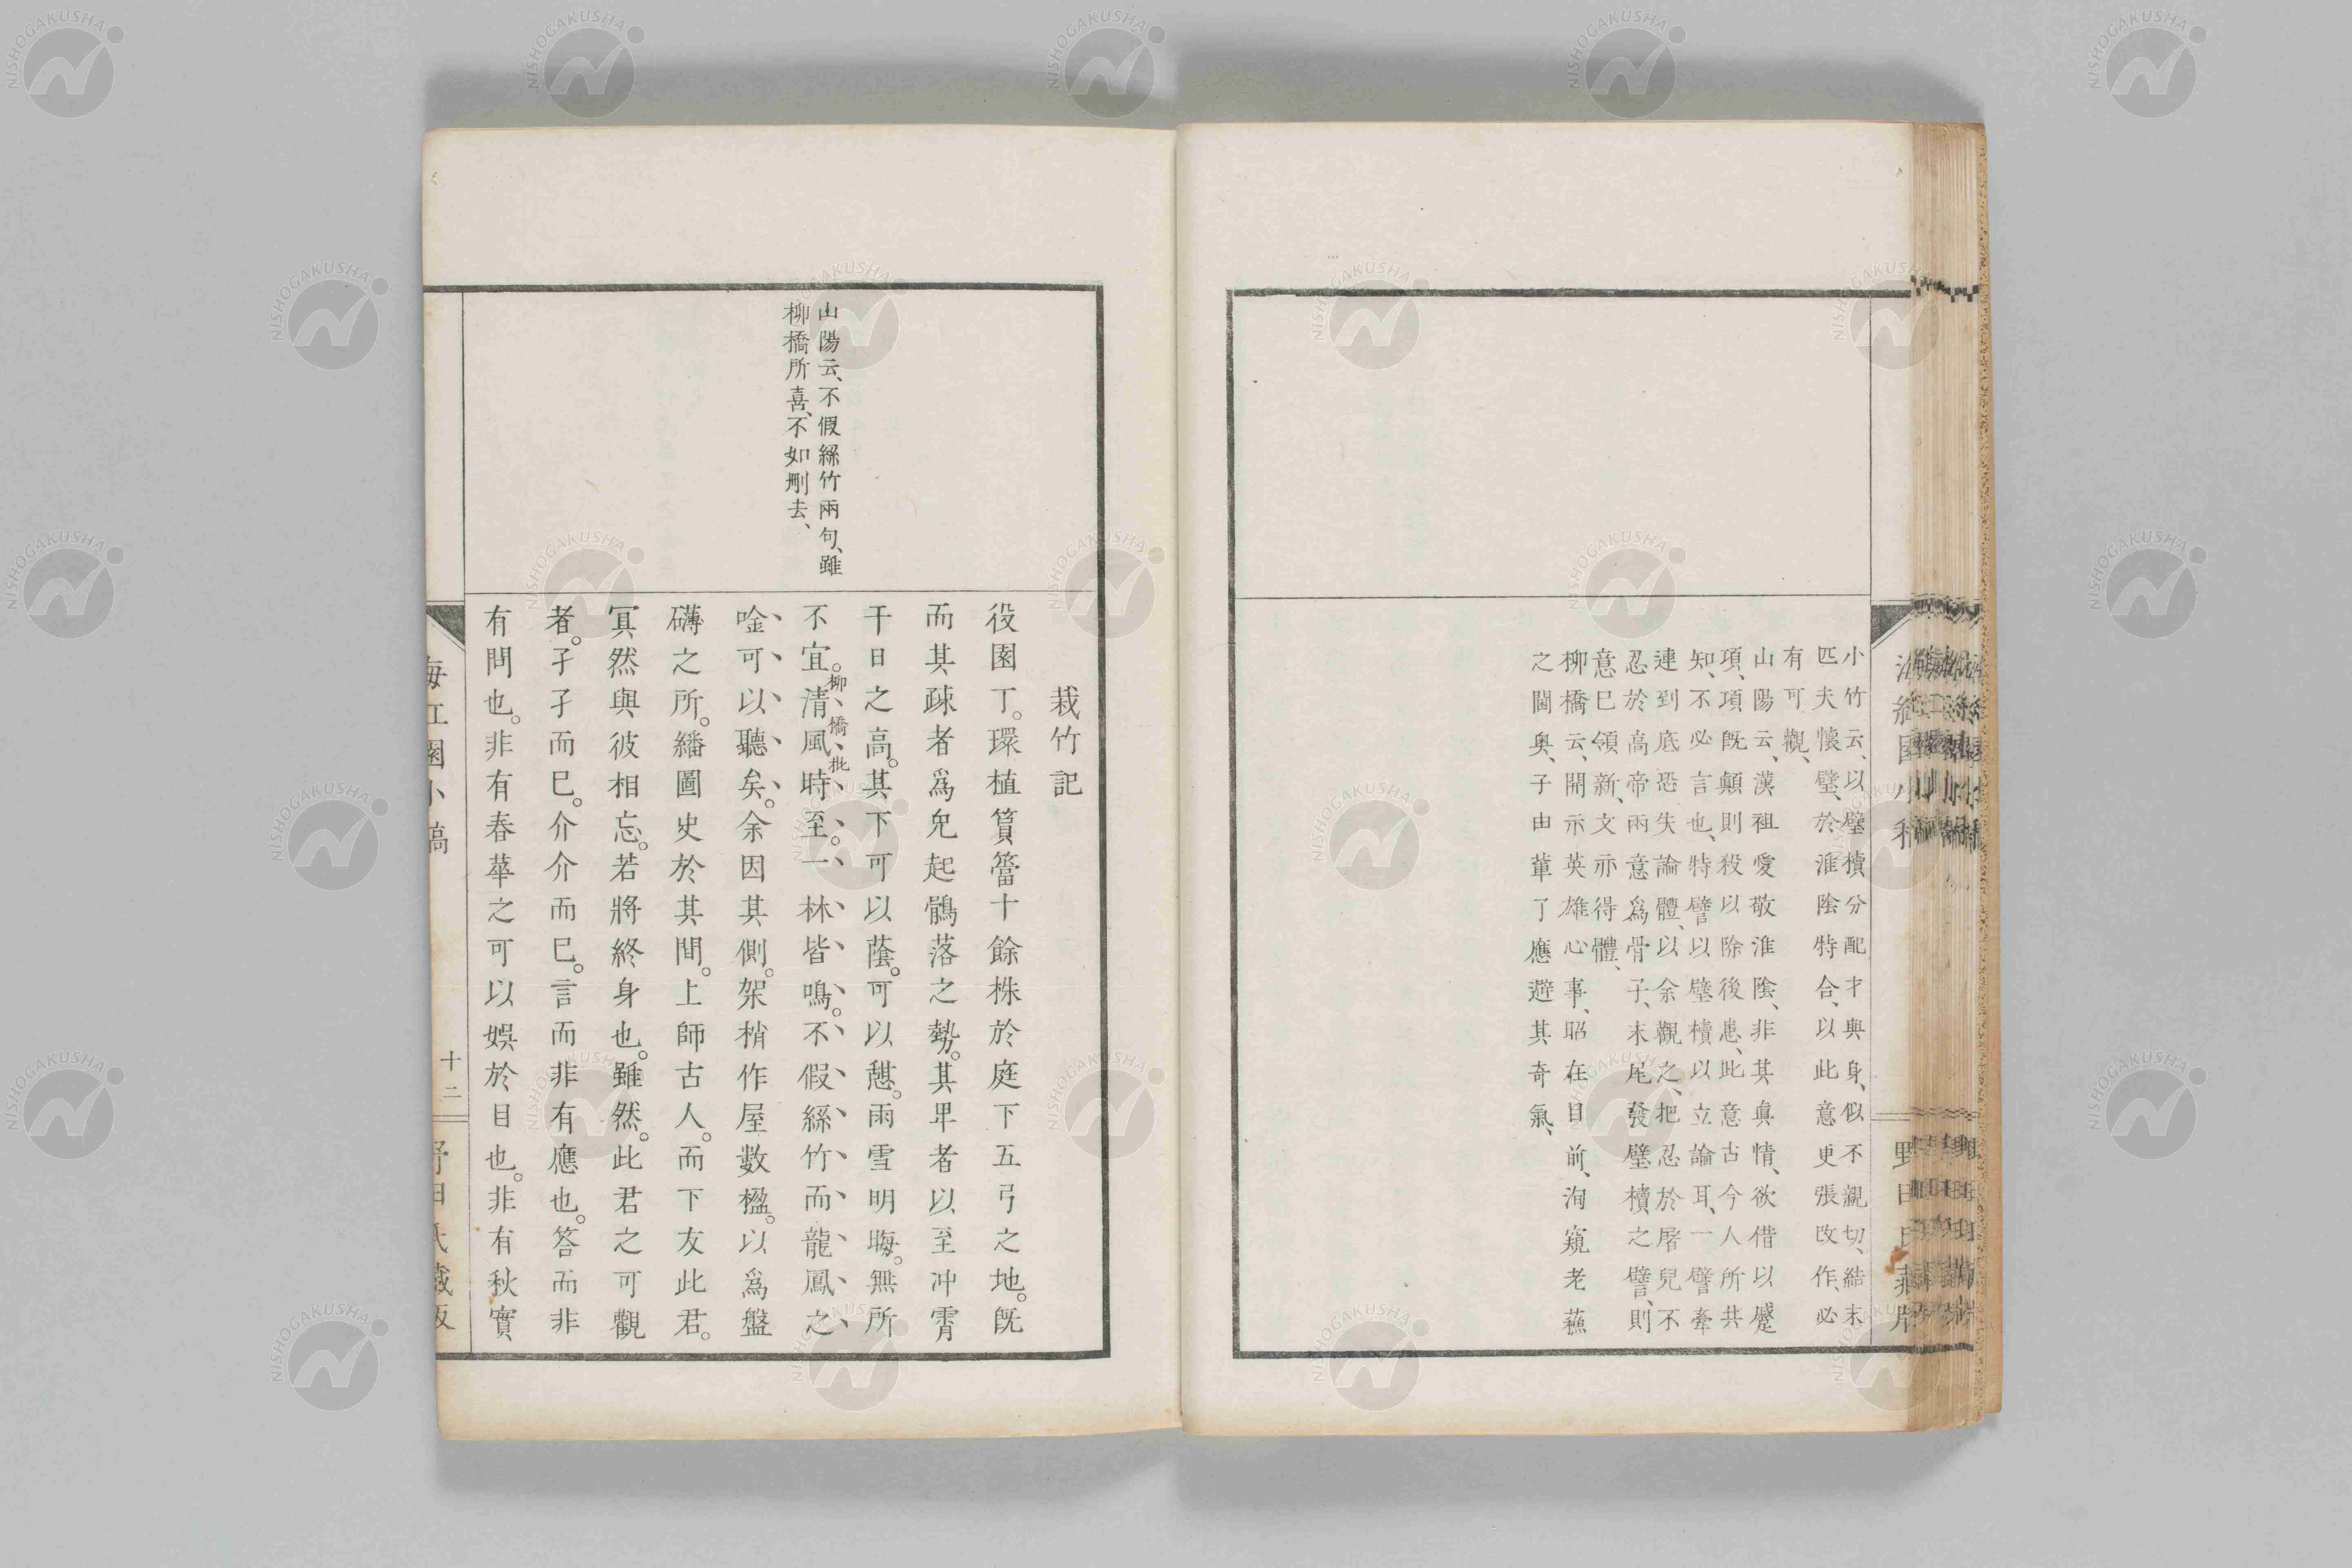 小竹云、以璧櫝分配才與身、似不親切、結末
匹夫懷璧、於淮陰特合、以此意更張改作、必
有可觀、
山陽云、漢祖愛敬淮陰、非其眞情、欲借以蹙
項、項既顛則殺以除後患、此意古今人所共
知、不必言也、特譬以璧櫝以立論耳、一譬牽
連到底恐失論體、以余觀之、把忍於屠兒不
忍於高帝兩意爲骨子、末尾發璧櫝之譬、則
意已領新、文亦得體、
柳橋云、開示英雄心事、昭在目前、洵窺老蘓
之閫奧、子由軰了應避其奇氣、
野田氏藏
山陽云、不假絲竹兩句、雖
柳橋所喜、不如刪去、
栽竹記
役園丁。環植篔簹十餘株於庭下五弓之地。既
而其疎者爲免起鶻落之勢。其卑者以至冲霄
干日之高。其下可以蔭。可以憇。雨雪明晦。無所
不宜。清風時至。一林皆鳴。不假絲竹而龍鳳之
柳橋批
唫可以聽矣。余因其側。架梢作屋數楹。以爲盤
礴之所。繙圖史於其間。上師古人。而下友此君。
冥然與彼相忘。若將終身也。雖然。此君之可觀
者。孑孑而已。介介而已。言而非有應也。答而非
有問也。非有春華之可以娯於目也。非有秋實
海紅園小稿
十二
野田氏藏版
NISHOGAKUSHA